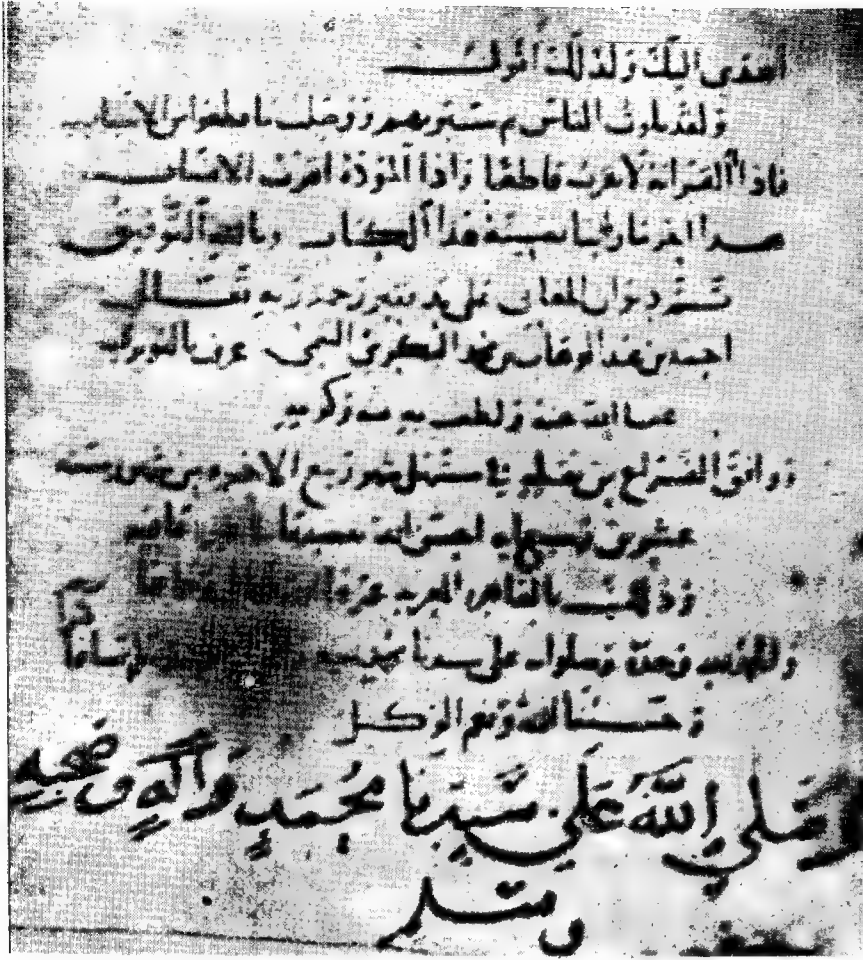 اهدى اليك ولذلك اقول
ولقد بلوت الناس ثم سبرتهم ووصلت ما قطعوا من الاسباب
فاذا القرابة لا تقرب قاطعا واذا المودة اقرب الانساب
هذا اخر ما تضمينه هذا الكتاب وبالله التوفيق
تم ديوان المعاني على يد فقير رحمة ربه تعالى
احمد بن عبد الوهاب بن محمد البكري التيمي عرف بالنويري
عفا الله عنه ولطف به بمنه وكرمه
ووافق الفراغ من تعليقه في مستهل شهر ربيع الاخر من شهور سنة
عشرين وسبعمائة احسن الله تقضيها
وذلك بالقاهرة المعزية عمرها
والحمد لله وحده وصلواته على سيدنا محمد كثيرا
وحسبنا الله ونعم الوكيل
وَصَلى اللَّهُ عَلَى سَيِّدِنَا مُحَمَدٍ وَآلِهِ وَصَحبِهِ
وسلم